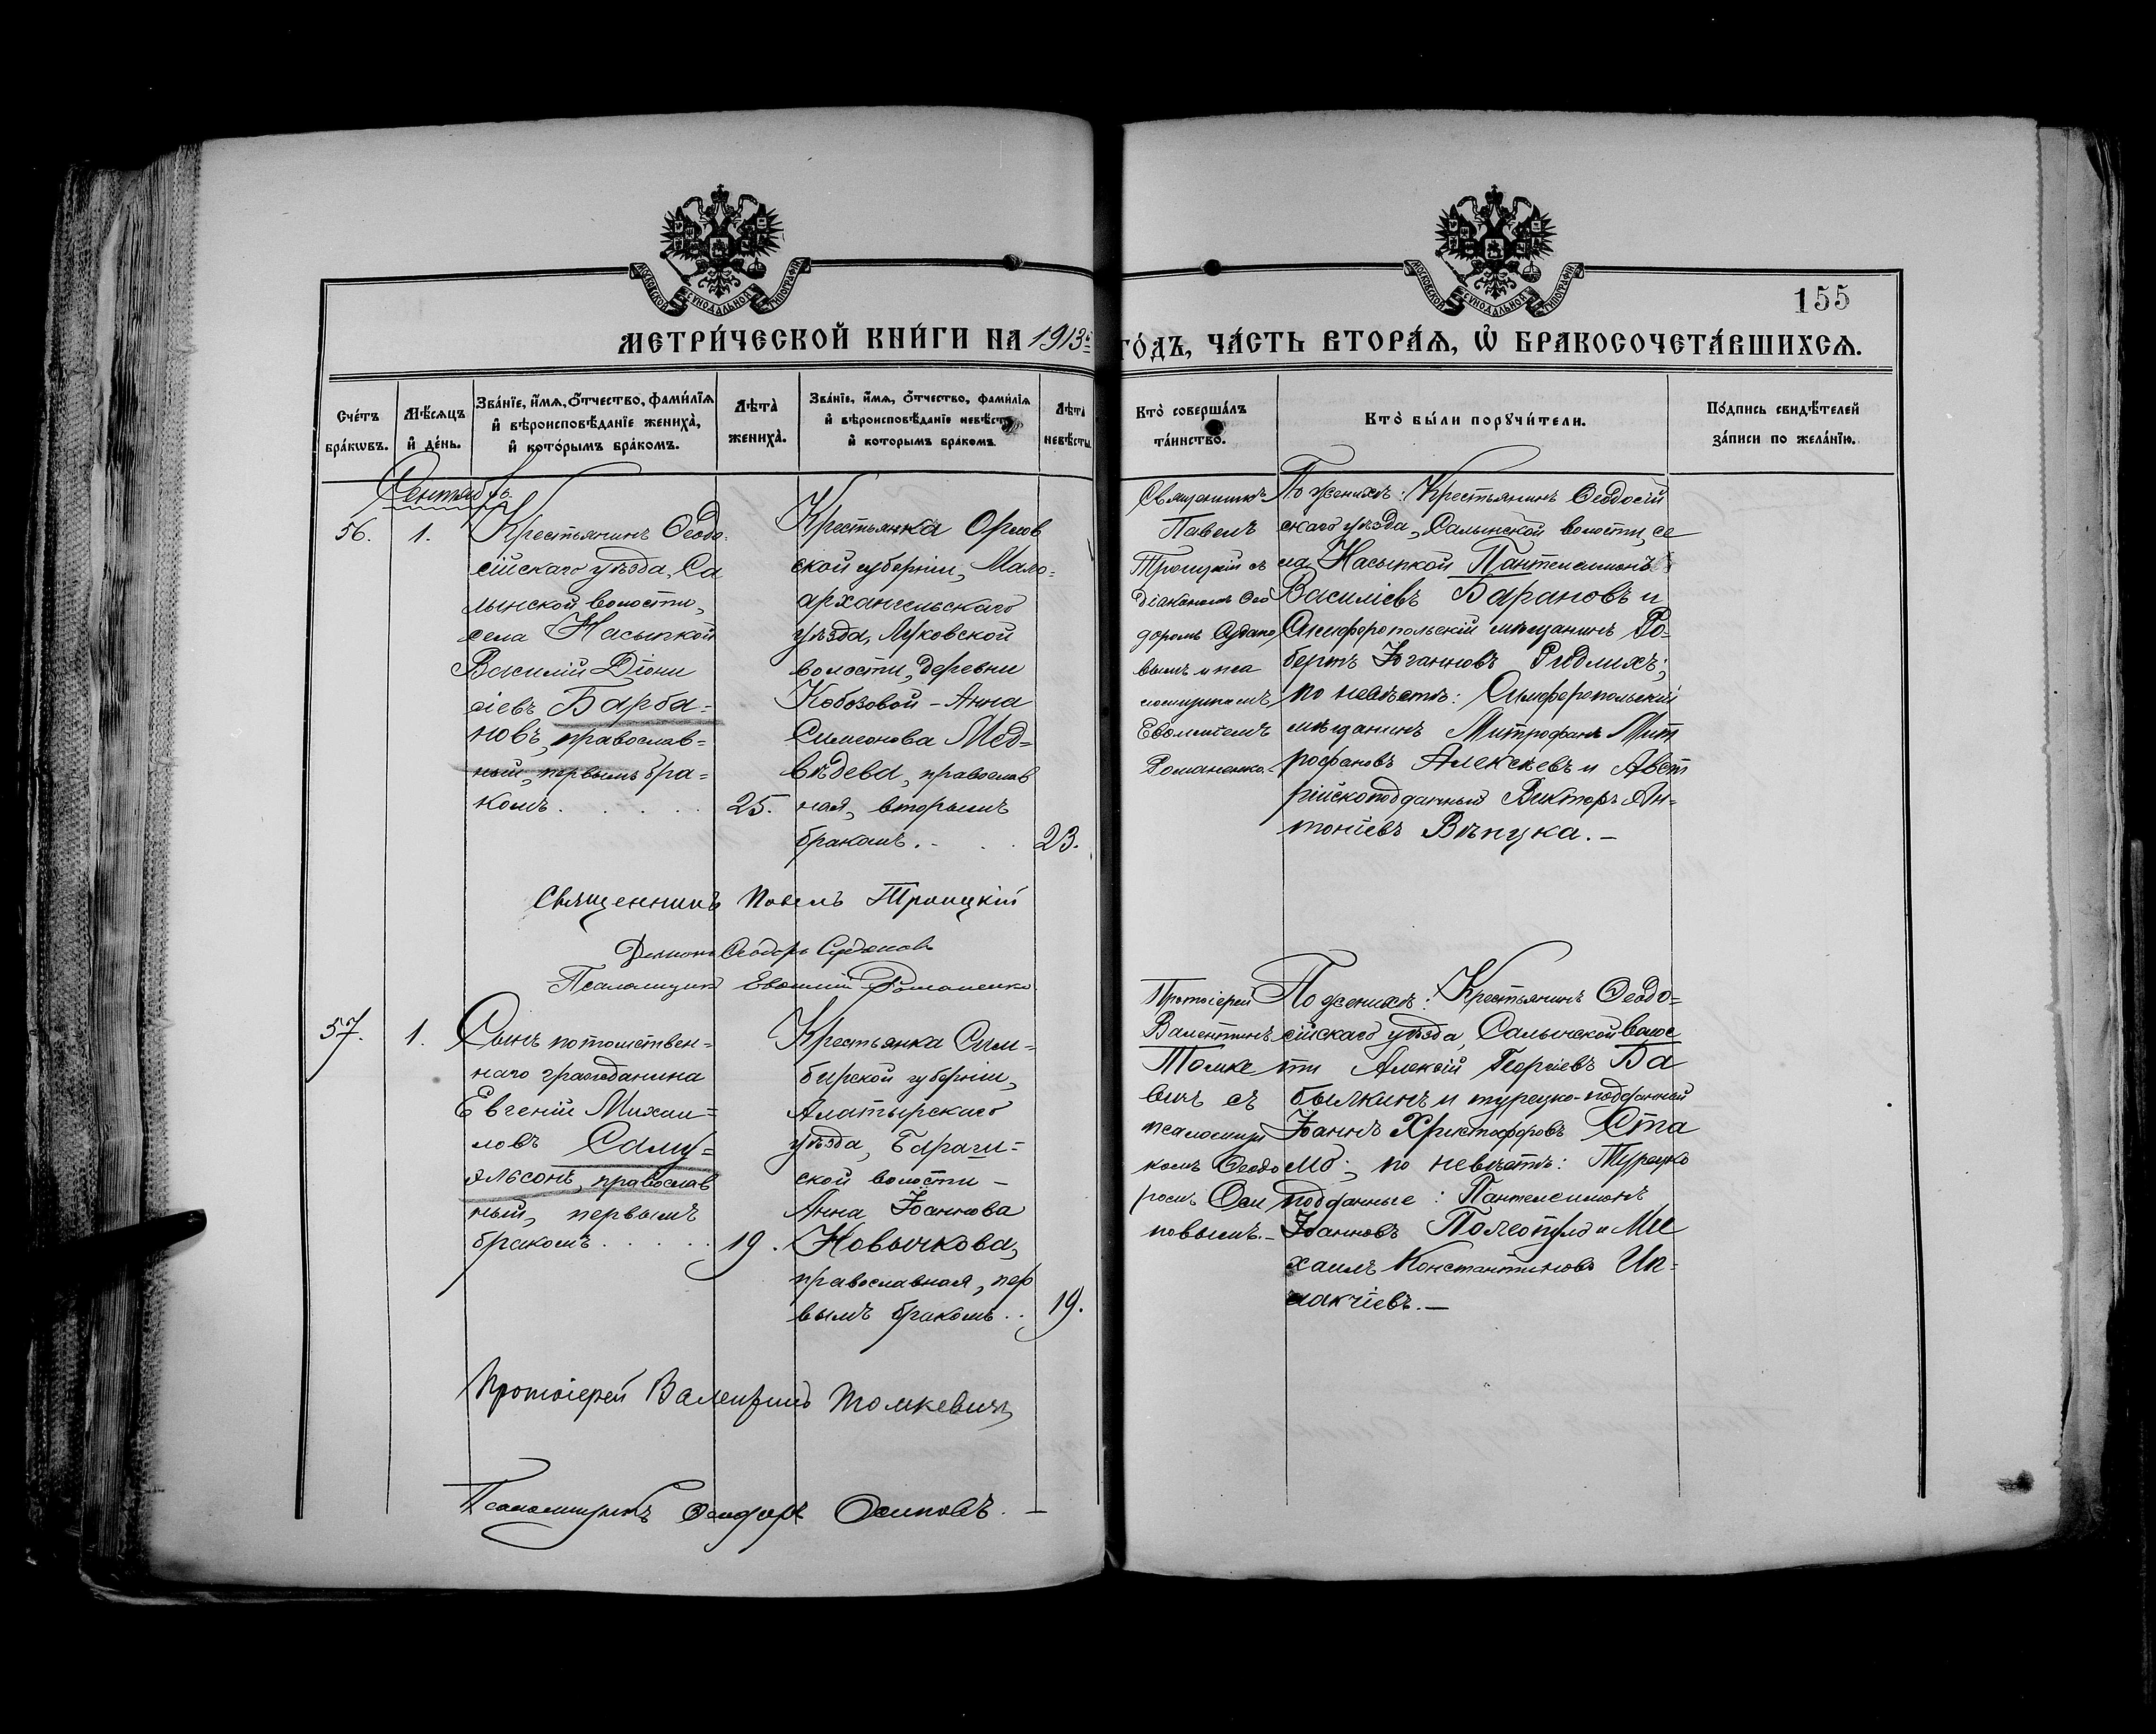 МОСКОВСКОЙ СѴНОДАЛЬНОЙ ТИПОГРАФІИ
МОСКОВСКОЙ СѴНОДАЛЬНОЙ ТИПОГРАФІИ
155
МЕТРИ́ЧЕСКОЙ КНИ́ГИ НА 1913й ГО́ДЪ, ЧА́СТЬ ВТОРА́Ѧ, Ѿ БРАКОСОЧЕТА́ВШИХСѦ.
Сче́тъ
бра́кѡвъ.
Мѣ́сѧцъ
и҆ де́нь.
Зва́нїе, и҆́мѧ, ѻ҆́тчество, фами́лїѧ
и҆ вѣроисповѣ́данїе жениха̀,
и҆ кото́рымъ бра́комъ.
Лѣта̀
жениха̀.
Зва́нїе, и҆́мѧ, ѻ҆́тчество, фами́лїѧ
и҆ вѣроисповѣ́данїе невѣ́сты
и҆ которымъ бра́комъ.
Лѣта̀
невѣ́сты
Кто̀ соверша́лъ
та́инство.
Кто̀ бы́ли порꙋчи́тели.
По́дпись свидѣ́телей
за́писи по жела́нїю.
Сентябрь.
56.
1.
Крестьянинъ Ѳеодо-
сійскаго уѣзда, Са
лынской волости,
села Насыпкой
Василій Діони
сіевъ Барба-
новъ, православ-
ный, первымъ бра-
комъ
25.
Крестьянка Орлов
ской губерніи, Мало-
архангельскаго
уѣзда, Луковской
волости, деревни
Кобозовой - Анна
Симеонова Мед-
вѣдева, православ
ная, вторымъ
бракомъ.
23.
Священникъ
Павелъ
Троицкій съ
діакономъ Ѳео
доромъ Судако
вымъ и пса
ломщикомъ
Евѳиміемъ
Романенко.
По женихѣ: Крестьянинъ Ѳеодосій
скаго уѣзда, Салынской волости, се
ла Насыпкой Пантелеимонъ
Василіевъ Барановъ и
Симферопольскій мѣщанинъ Ро-
бертъ Іоганновъ Ридлихъ;
по невѣстѣ: Симферопольскій
мѣщанинъ Митрофанъ Мит
рофановъ Алексѣевъ и Авст
рійскоподданный Викторъ Ан-
тоніевъ Вѣпука.
Священникъ Павелъ Троицкій
Діаконъ Ѳеодоръ Судаковъ
Псаломщикъ Евѳимій Романенко
57.
1.
Сынъ потомствен-
наго гражданина
Евгеній Михаи-
ловъ Саму-
эльсонъ, православ
ный, первымъ
бракомъ
19.
Крестьянка Сим-
бирской губерніи,
Алатырскаго
уѣзда,
ской волости -
Анна Іоаннова
Новычкова,
православная, пер
вымъ бракомъ
19.
Протоіерей
Валентинъ
Томке
вичъ съ
псаломщи
комъ Ѳеодо
ромъ Оси
повымъ.
По женихѣ: Крестьянинъ Ѳеодо-
сійскаго уѣзда, Салынской волос
ти Алексій Георгіевъ Ба
былкинъ и турецко-подданный
Іоаннъ Христофоровъ Ста
мо; по невѣстѣ: Турецко
подданные: Пантелеимонъ
Іоанновъ и Ми
хаилъ Константиновъ
Протоіерей Валентинъ Томкевичъ
Псаломщикъ Ѳеодоръ Осиповъ.